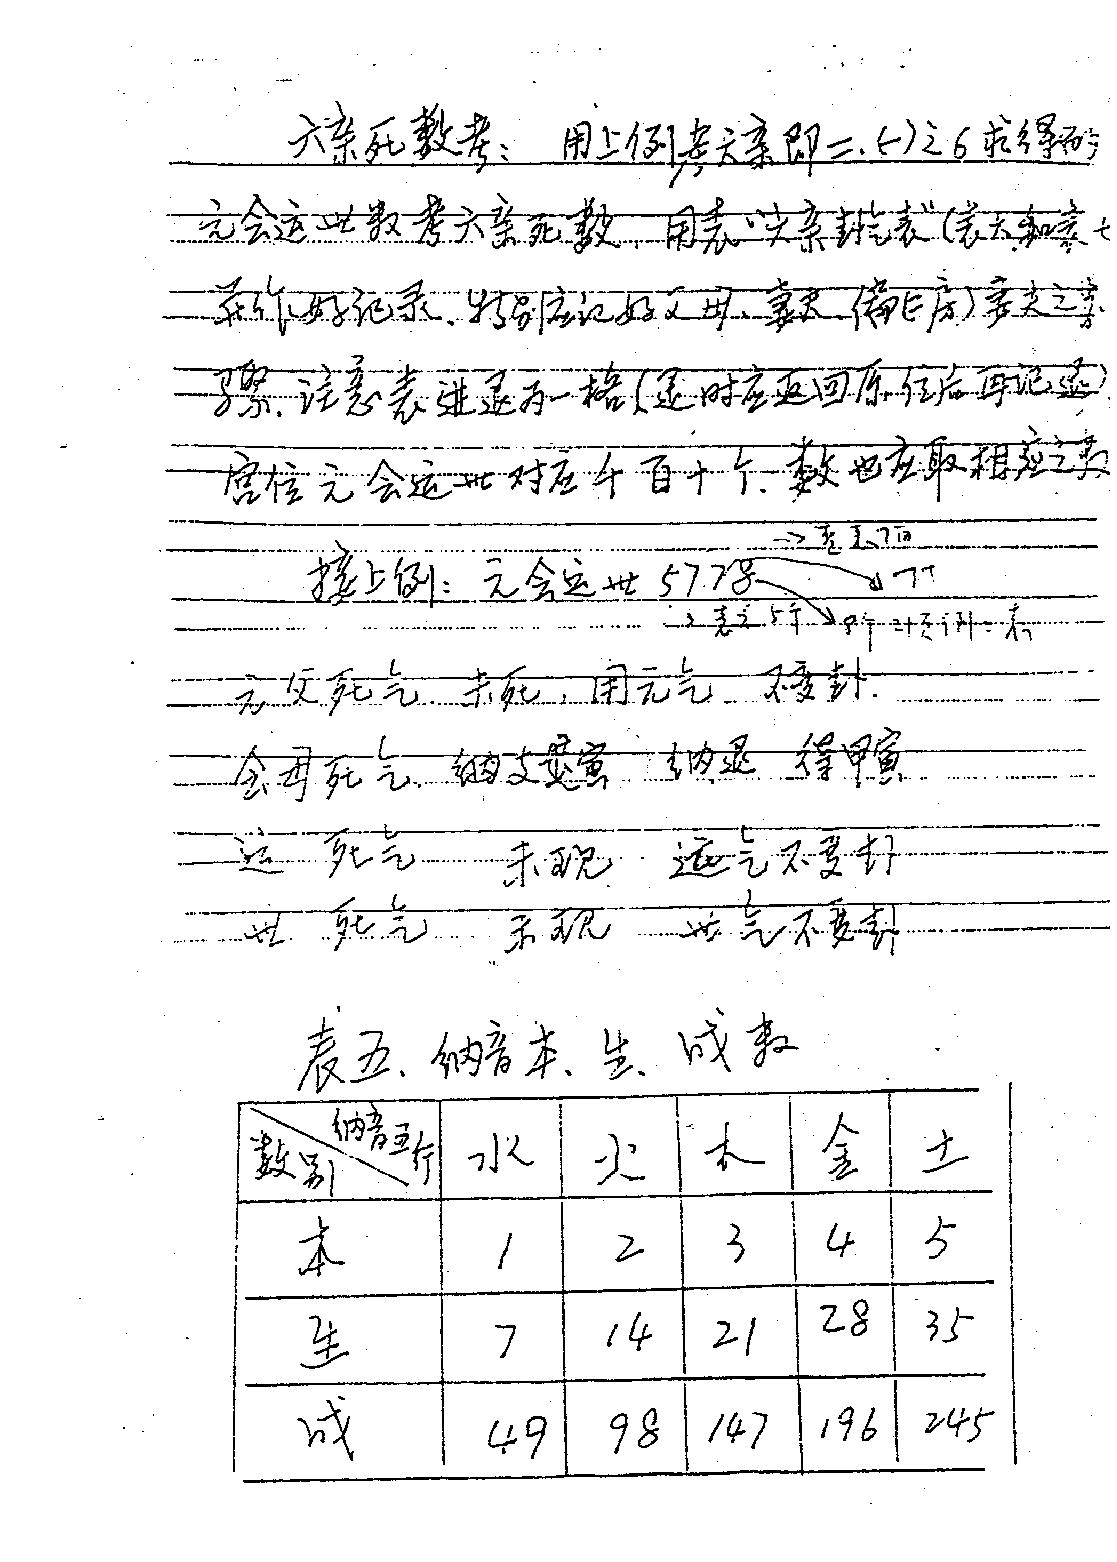 六亲死数考：用上例考六亲即二.(一)之6求得的
元会运世数考六亲死数，用表“六亲封气表”(表六和表七
并作好记录、特别应记好父母、妻夫、偏(上房)妻夫之
注意表进退为一格(退时应返回原位后再记退)
宫位元会运世对应千百十个、数也应取相应之
接上例：元会运世 5778
元父死气、未死，用元气 不变卦.
会母死气、纳支 寅 纳退 得甲寅
运 死气 未现 运气不变卦
世 死气 未现 世气不变卦
表五、纳音本、生、成数
数别 纳音五行 水 火 木 金 土
本 1 2 3 4 5
生 7 14 21 28 35
成 49 98 147 196 245